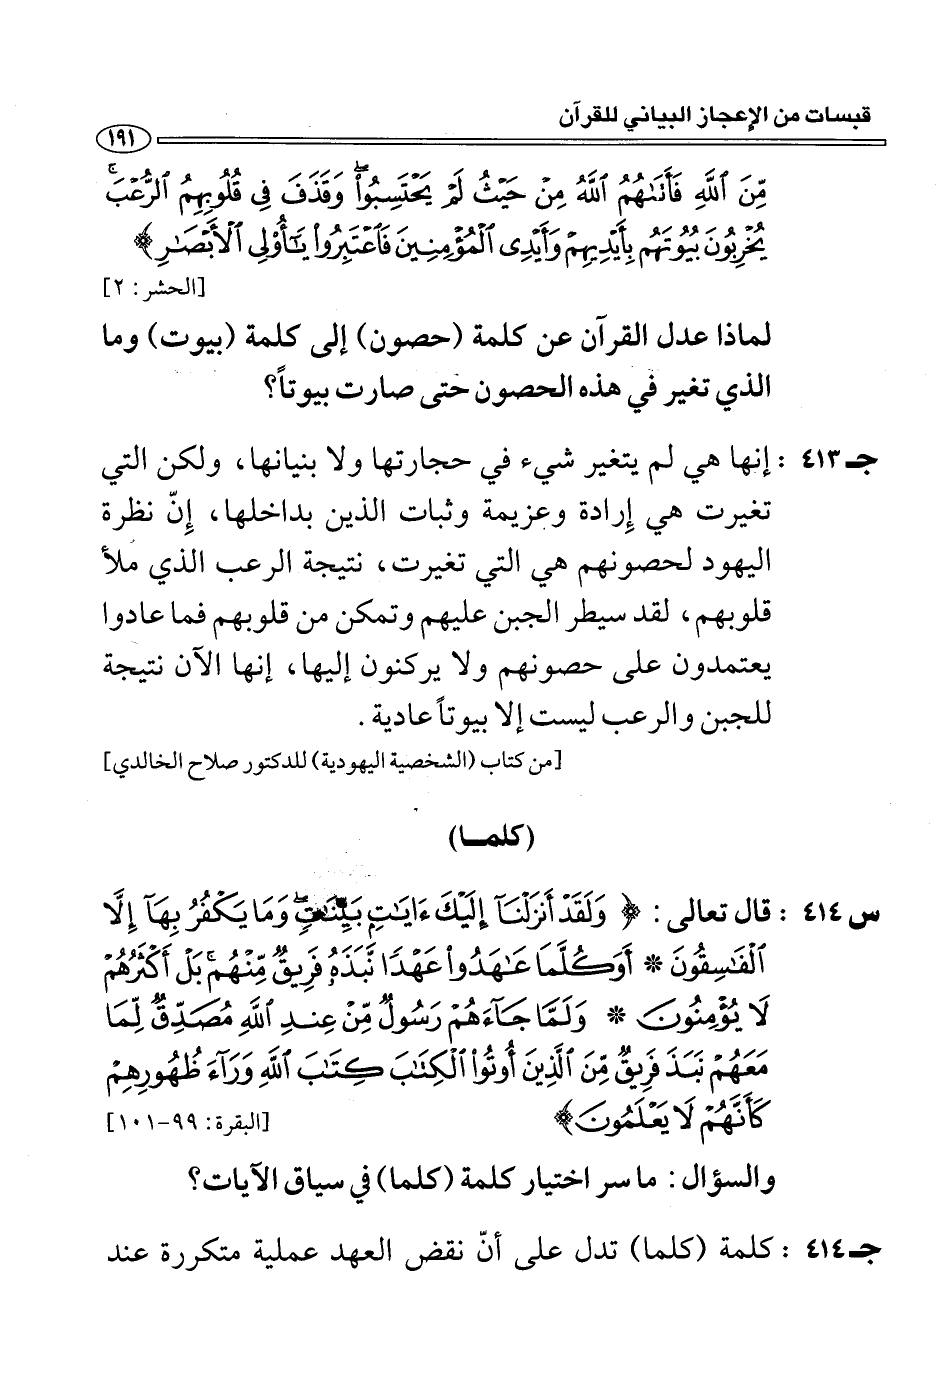 قبسات من الإعجاز البياني للقرآن
١٩١
مِّنَ ٱللَّهِ فَأَتَىٰهُمُ ٱللَّهُ مِنْ حَيْثُ لَمْ يَحْتَسِبُوا۟ ۖ وَقَذَفَ فِى قُلُوبِهِمُ ٱلرُّعْبَ ۚ
يُخْرِبُونَ بُيُوتَهُم بِأَيْدِيهِمْ وَأَيْدِى ٱلْمُؤْمِنِينَ فَٱعْتَبِرُوا۟ يَـٰٓأُو۟لِى ٱلْأَبْصَـٰرِ ﴾
[الحشر: ٢]
لماذا عدل القرآن عن كلمة (حصون) إلى كلمة (بيوت) وما
الذي تغير في هذه الحصون حتى صارت بيوتاً؟
جـ ٤١٣ : إنها هي لم يتغير شيء في حجارتها ولا بنيانها، ولكن التي
تغيرت هي إرادة وعزيمة وثبات الذين بداخلها، إنّ نظرة
اليهود لحصونهم هي التي تغيرت، نتيجة الرعب الذي ملأ
قلوبهم، لقد سيطر الجبن عليهم وتمكن من قلوبهم فما عادوا
يعتمدون على حصونهم ولا يركنون إليها، إنها الآن نتيجة
للجبن والرعب ليست إلا بيوتاً عادية.
[من كتاب (الشخصية اليهودية) للدكتور صلاح الخالدي]
(كلمـا)
س ٤١٤ : قال تعالى: ﴿ وَلَقَدْ أَنزَلْنَآ إِلَيْكَ ءَايَـٰتٍۭ بَيِّنَـٰتٍ ۖ وَمَا يَكْفُرُ بِهَآ إِلَّا
ٱلْفَـٰسِقُونَ * أَوَكُلَّمَا عَـٰهَدُوا۟ عَهْدًا نَّبَذَهُۥ فَرِيقٌ مِّنْهُم ۚ بَلْ أَكْثَرُهُمْ
لَا يُؤْمِنُونَ * وَلَمَّا جَآءَهُمْ رَسُولٌ مِّنْ عِندِ ٱللَّهِ مُصَدِّقٌ لِّمَا
مَعَهُمْ نَبَذَ فَرِيقٌ مِّنَ ٱلَّذِينَ أُوتُوا۟ ٱلْكِتَـٰبَ كِتَـٰبَ ٱللَّهِ وَرَآءَ ظُهُورِهِمْ
كَأَنَّهُمْ لَا يَعْلَمُونَ ﴾ [البقرة: ٩٩-١٠١]
والسؤال: ما سر اختيار كلمة (كلما) في سياق الآيات؟
جـ ٤١٤ : كلمة (كلما) تدل على أنّ نقض العهد عملية متكررة عند